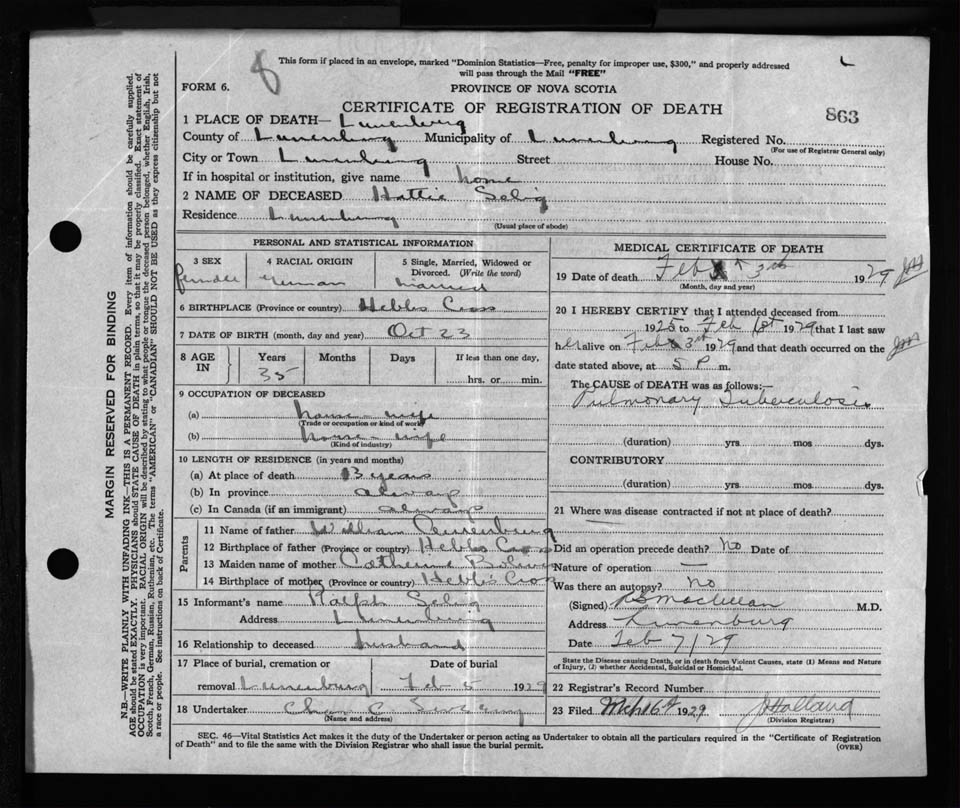 8
This form if placed in an envelope, marked "Dominion Statistics—Free, penalty for improper use, $300," and properly addressed
will pass through the Mail "FREE"
FORM 6.
PROVINCE OF NOVA SCOTIA
CERTIFICATE OF REGISTRATION OF DEATH
863
1 PLACE OF DEATH— Lunenburg
County of Lunenburg Municipality of Lunenburg Registered No.
(For use of Registrar General only)
City or Town Lunenburg Street House No.
If in hospital or institution, give name home
2 NAME OF DECEASED Hattie Selig
Residence Lunenburg
(Usual place of abode)
PERSONAL AND STATISTICAL INFORMATION
3 SEX 4 RACIAL ORIGIN 5 Single, Married, Widowed or
Divorced. (Write the word)
female German married
6 BIRTHPLACE (Province or country) Hebbs Cross
7 DATE OF BIRTH (month, day and year) Oct 23
8 AGE IN Years Months Days If less than one day,
35 hrs. or min.
9 OCCUPATION OF DECEASED
(a) house-wife
(Trade or occupation or kind of work)
(b) house-wife
(Kind of industry)
10 LENGTH OF RESIDENCE (in years and months)
(a) At place of death 13 years
(b) In province always
(c) In Canada (if an immigrant) always
Parents
11 Name of father William
12 Birthplace of father (Province or country) Hebbs Cross
13 Maiden name of mother Catherine
14 Birthplace of mother (Province or country) Hebb's Cross
15 Informant's name Ralph Selig
Address Lunenburg
16 Relationship to deceased husband
17 Place of burial, cremation or Date of burial
removal Lunenburg Feb 5 1929
18 Undertaker
(Name and address)
MEDICAL CERTIFICATE OF DEATH
19 Date of death Feb 3rd 1929
(Month, day and year)
20 I HEREBY CERTIFY that I attended deceased from
1925 to Feb 1st 1929 that I last saw
her alive on Feb 3rd 1929 and that death occurred on the
date stated above, at 5 P. m.
The CAUSE of DEATH was as follows:—
Pulmonary Tuberculosis
(duration) yrs. mos. dys.
CONTRIBUTORY
(duration) yrs. mos. dys.
21 Where was disease contracted if not at place of death?
Did an operation precede death? No Date of
Nature of operation —
Was there an autopsy? No
(Signed) M.D.
Address Lunenburg
Date Feb 7/29
State the Disease causing Death, or in death from Violent Causes, state (1) Means and Nature
of Injury, (2) whether Accidental, Suicidal or Homicidal.
22 Registrar's Record Number
23 Filed Mch 16th 1929 J Holland
(Division Registrar)
SEC. 46—Vital Statistics Act makes it the duty of the Undertaker or person acting as Undertaker to obtain all the particulars required in the "Certificate of Registration
of Death" and to file the same with the Division Registrar who shall issue the burial permit.
(OVER)
MARGIN RESERVED FOR BINDING
N.B.—WRITE PLAINLY WITH UNFADING INK—THIS IS A PERMANENT RECORD. Every item of information should be carefully supplied.
AGE should be stated EXACTLY. PHYSICIANS should STATE CAUSE OF DEATH in plain terms, so that it may be properly classified. Exact statement of
OCCUPATION is very important. RACIAL ORIGIN will be described by stating to what people or tongue the deceased person belonged, whether English, Irish,
Scotch, French, German, Russian, Ruthenian, etc. The terms "AMERICAN" or "CANADIAN" SHOULD NOT BE USED as they express citizenship but not
a race or people. See instructions on back of Certificate.